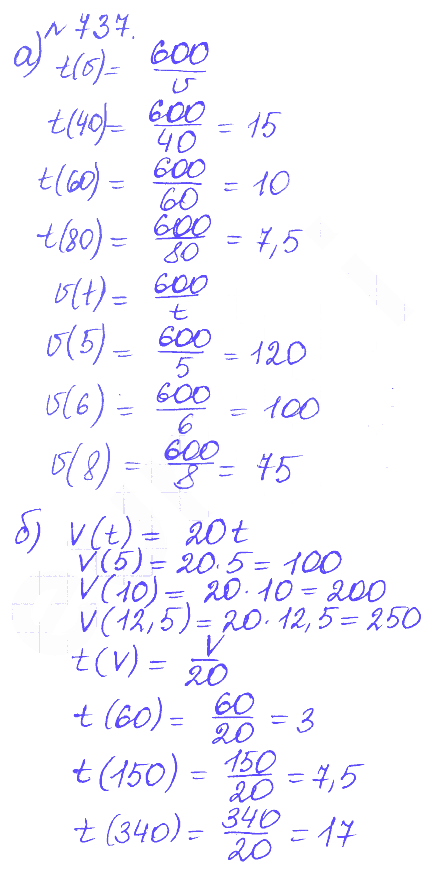 № 737.
а) t(υ) = 600/υ
t(40) = 600/40 = 15
t(60) = 600/60 = 10
t(80) = 600/80 = 7,5
υ(t) = 600/t
υ(5) = 600/5 = 120
υ(6) = 600/6 = 100
υ(8) = 600/8 = 75
б) V(t) = 20t
V(5) = 20·5 = 100
V(10) = 20·10 = 200
V(12,5) = 20·12,5 = 250
t(V) = V/20
t(60) = 60/20 = 3
t(150) = 150/20 = 7,5
t(340) = 340/20 = 17